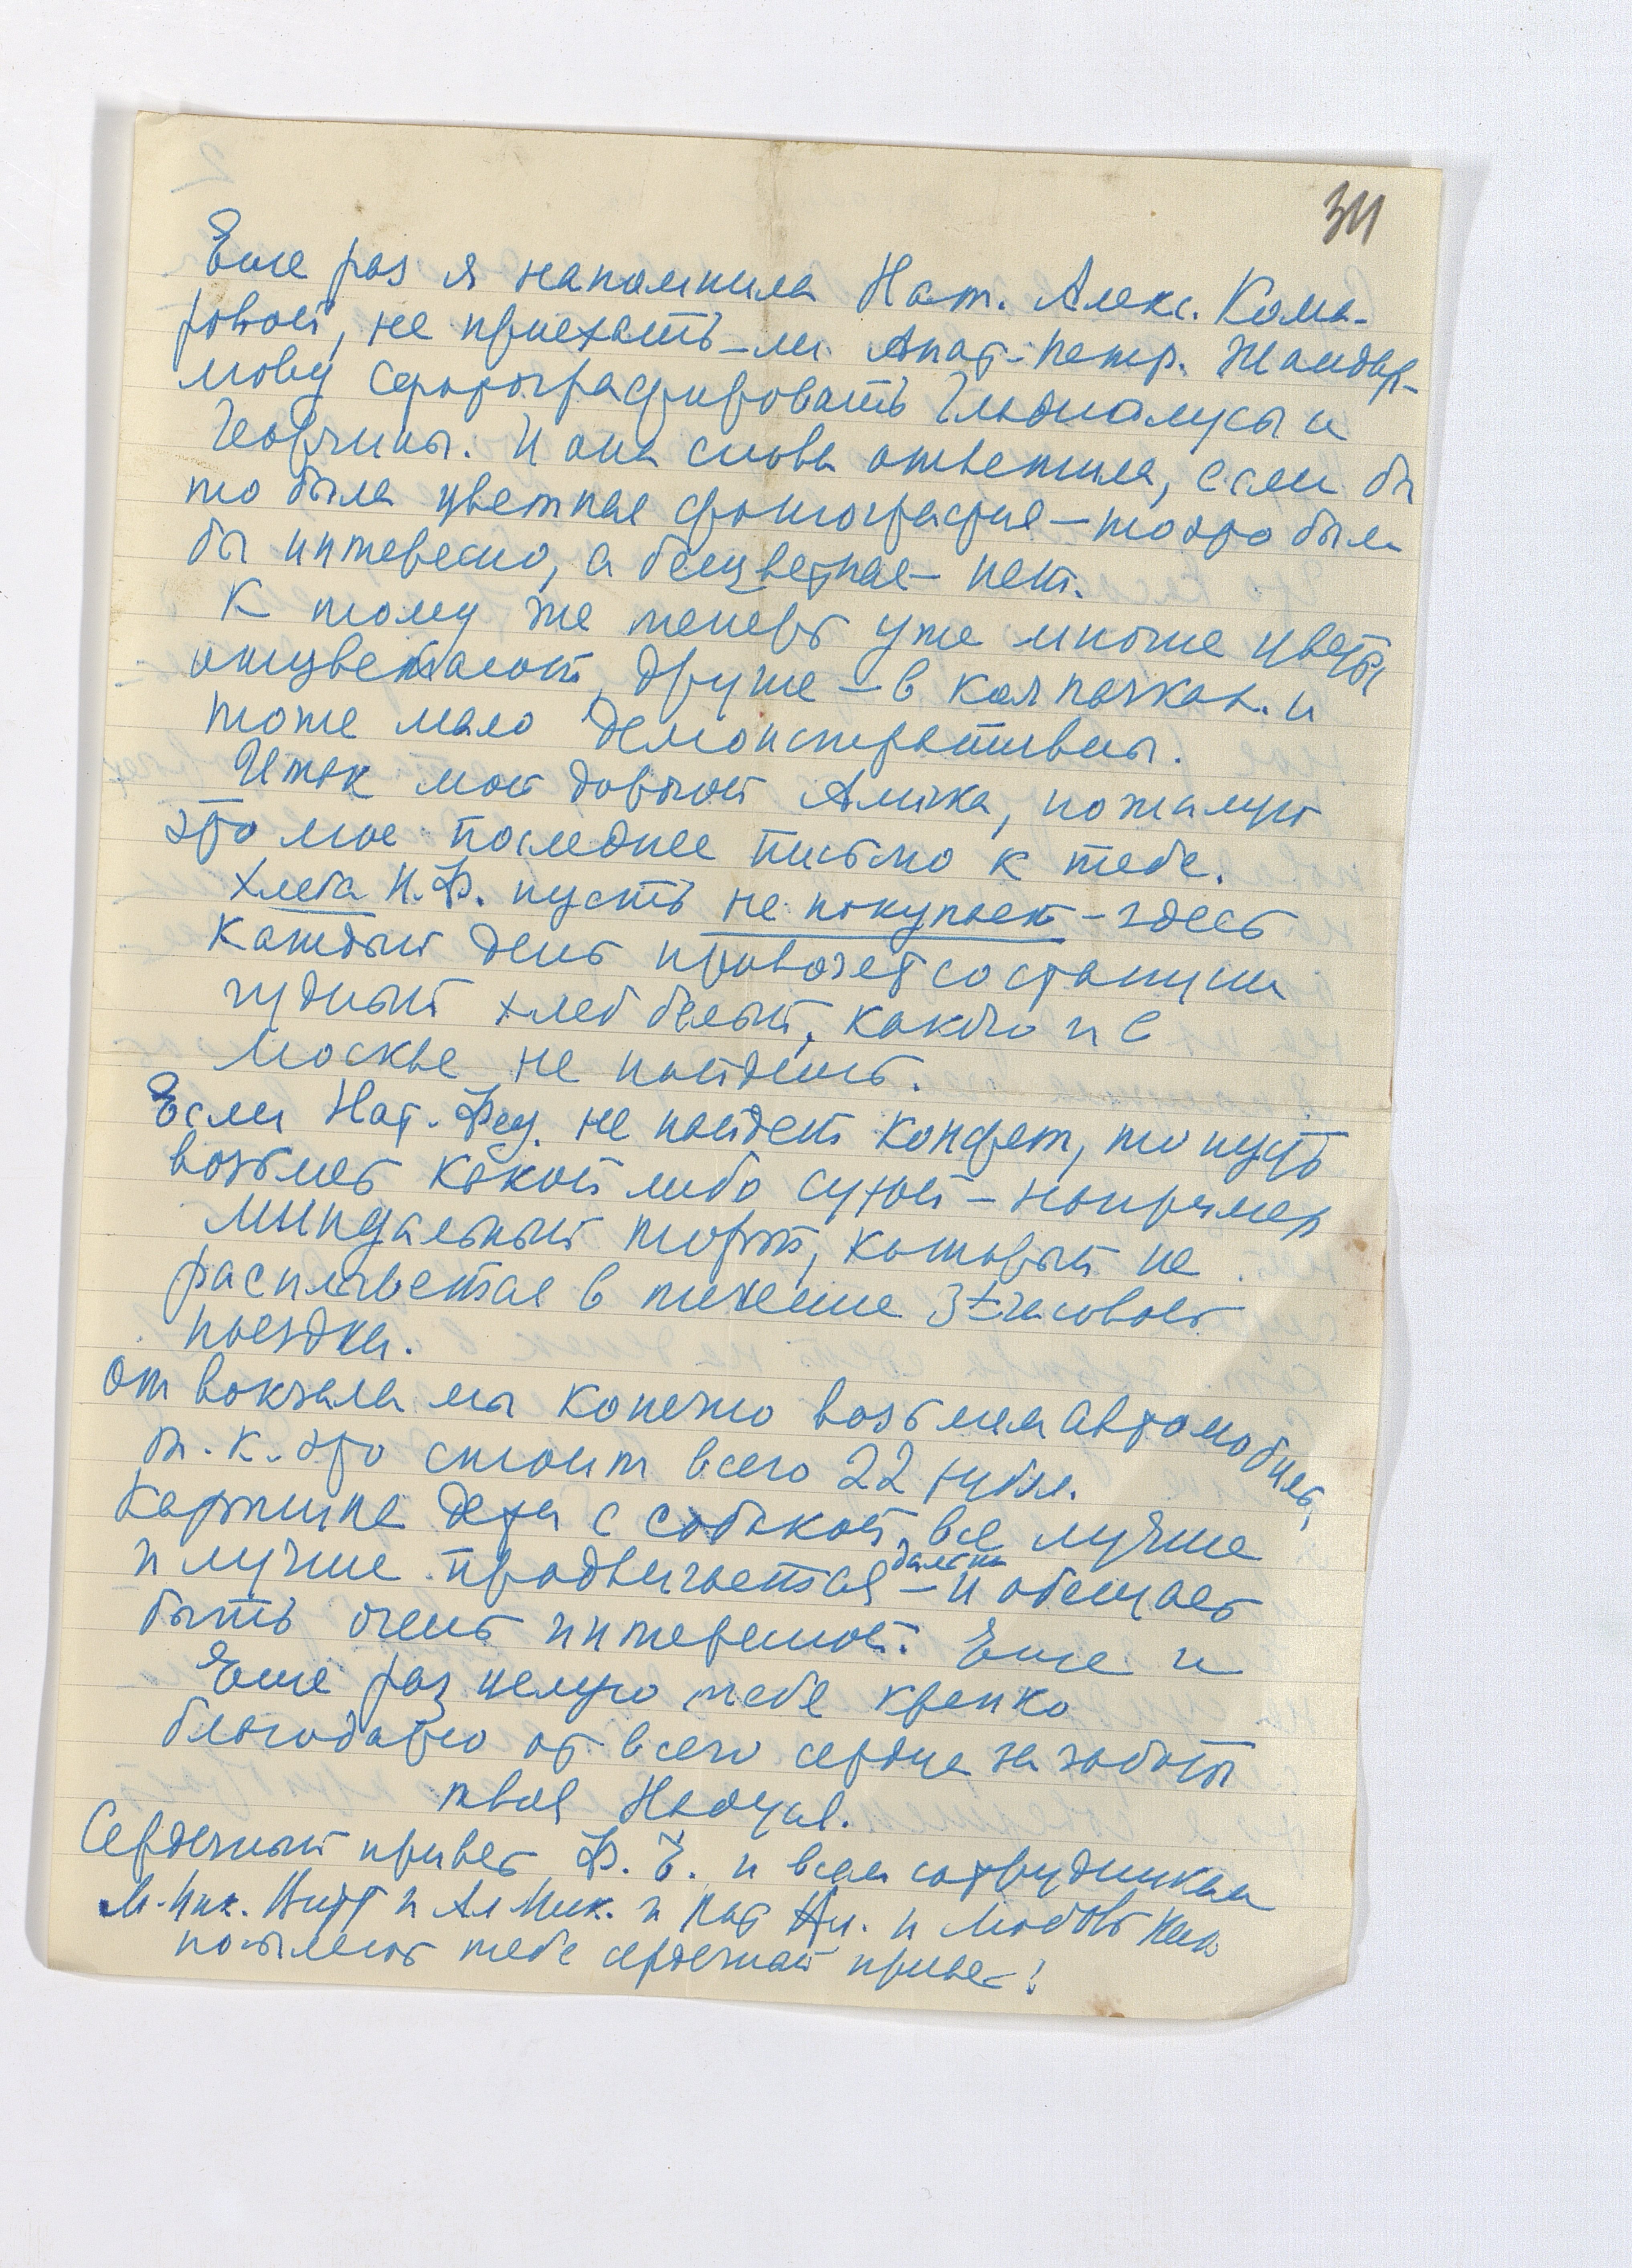 311
Еще раз я напомнила Нат. Алекс. Кома-
ровой, не приехать-ли Анат. Петр. Жандар-
мову сфотографировать Гладиолусы и
Георгины. И она снова ответила, если бы
то была цветная фотография – тогда было
бы интересно, а бесцветная – нет.
К тому же теперь уже многие цветы
отцветают, другие – в колпачках. и
тоже мало демонстративны.
Итак мой дорогой Алička, пожалуй
это мое последнее письмо к тебе.
Хлеба Н.Ф. пусть не покупает – здесь
каждый день привозят со станции
чудный хлеб белый, какого и в
Москве не найдешь.
Если Нат. Фед. не найдет конфет, то пусть
возьмет какой либо сухой – например
миндальный торт, который не
расплывется в течение 3х часовой
поездки.
От вокзала мы конечно возьмем автомобиль,
т.к. это стоит всего 22 рубля.
Картина дети с собакой, все лучше
и лучше продвигается дальше – и обещает
быть очень интересной. Еще и
Еще раз целую тебя крепко
благодарю от всего сердца за заботы
твоя Надуся.
Сердечный привет Ф. Е. и всем сотрудникам
М. Ник. Витт и Ал Ник. и Ан. и Любовь
посылают тебе сердечный привет!